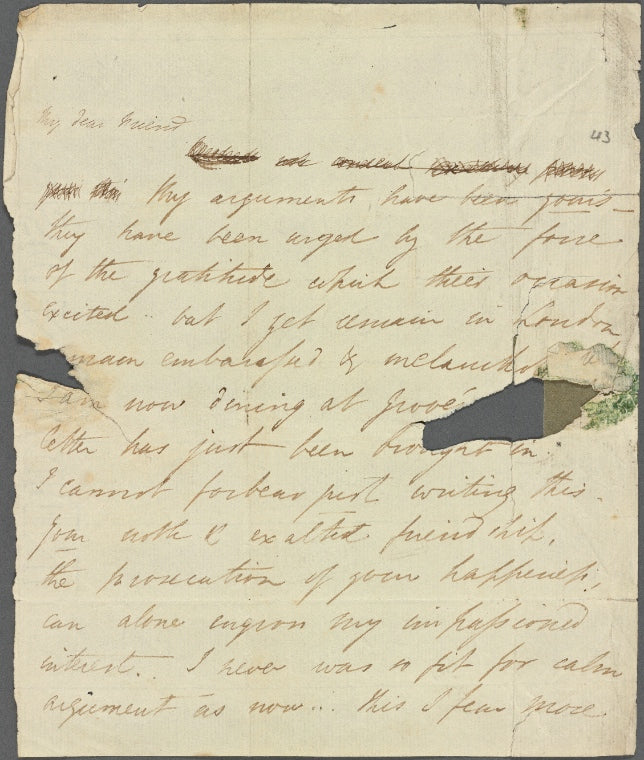 My dear Friend
43
ardent
My arguments have been yours—
they have been urged by the force
of the gratitude which their occasion
excited.. but I yet remain in London
main embarassed & melanchol
I am now dining at Grove
letter has just been brought in.
I cannot forbear just writing this.
Your noble & exalted friendship,
the prosecution of your happiness,
can alone engross my impassioned
interest.. I never was so fit for calm
argument as now... this I fear more